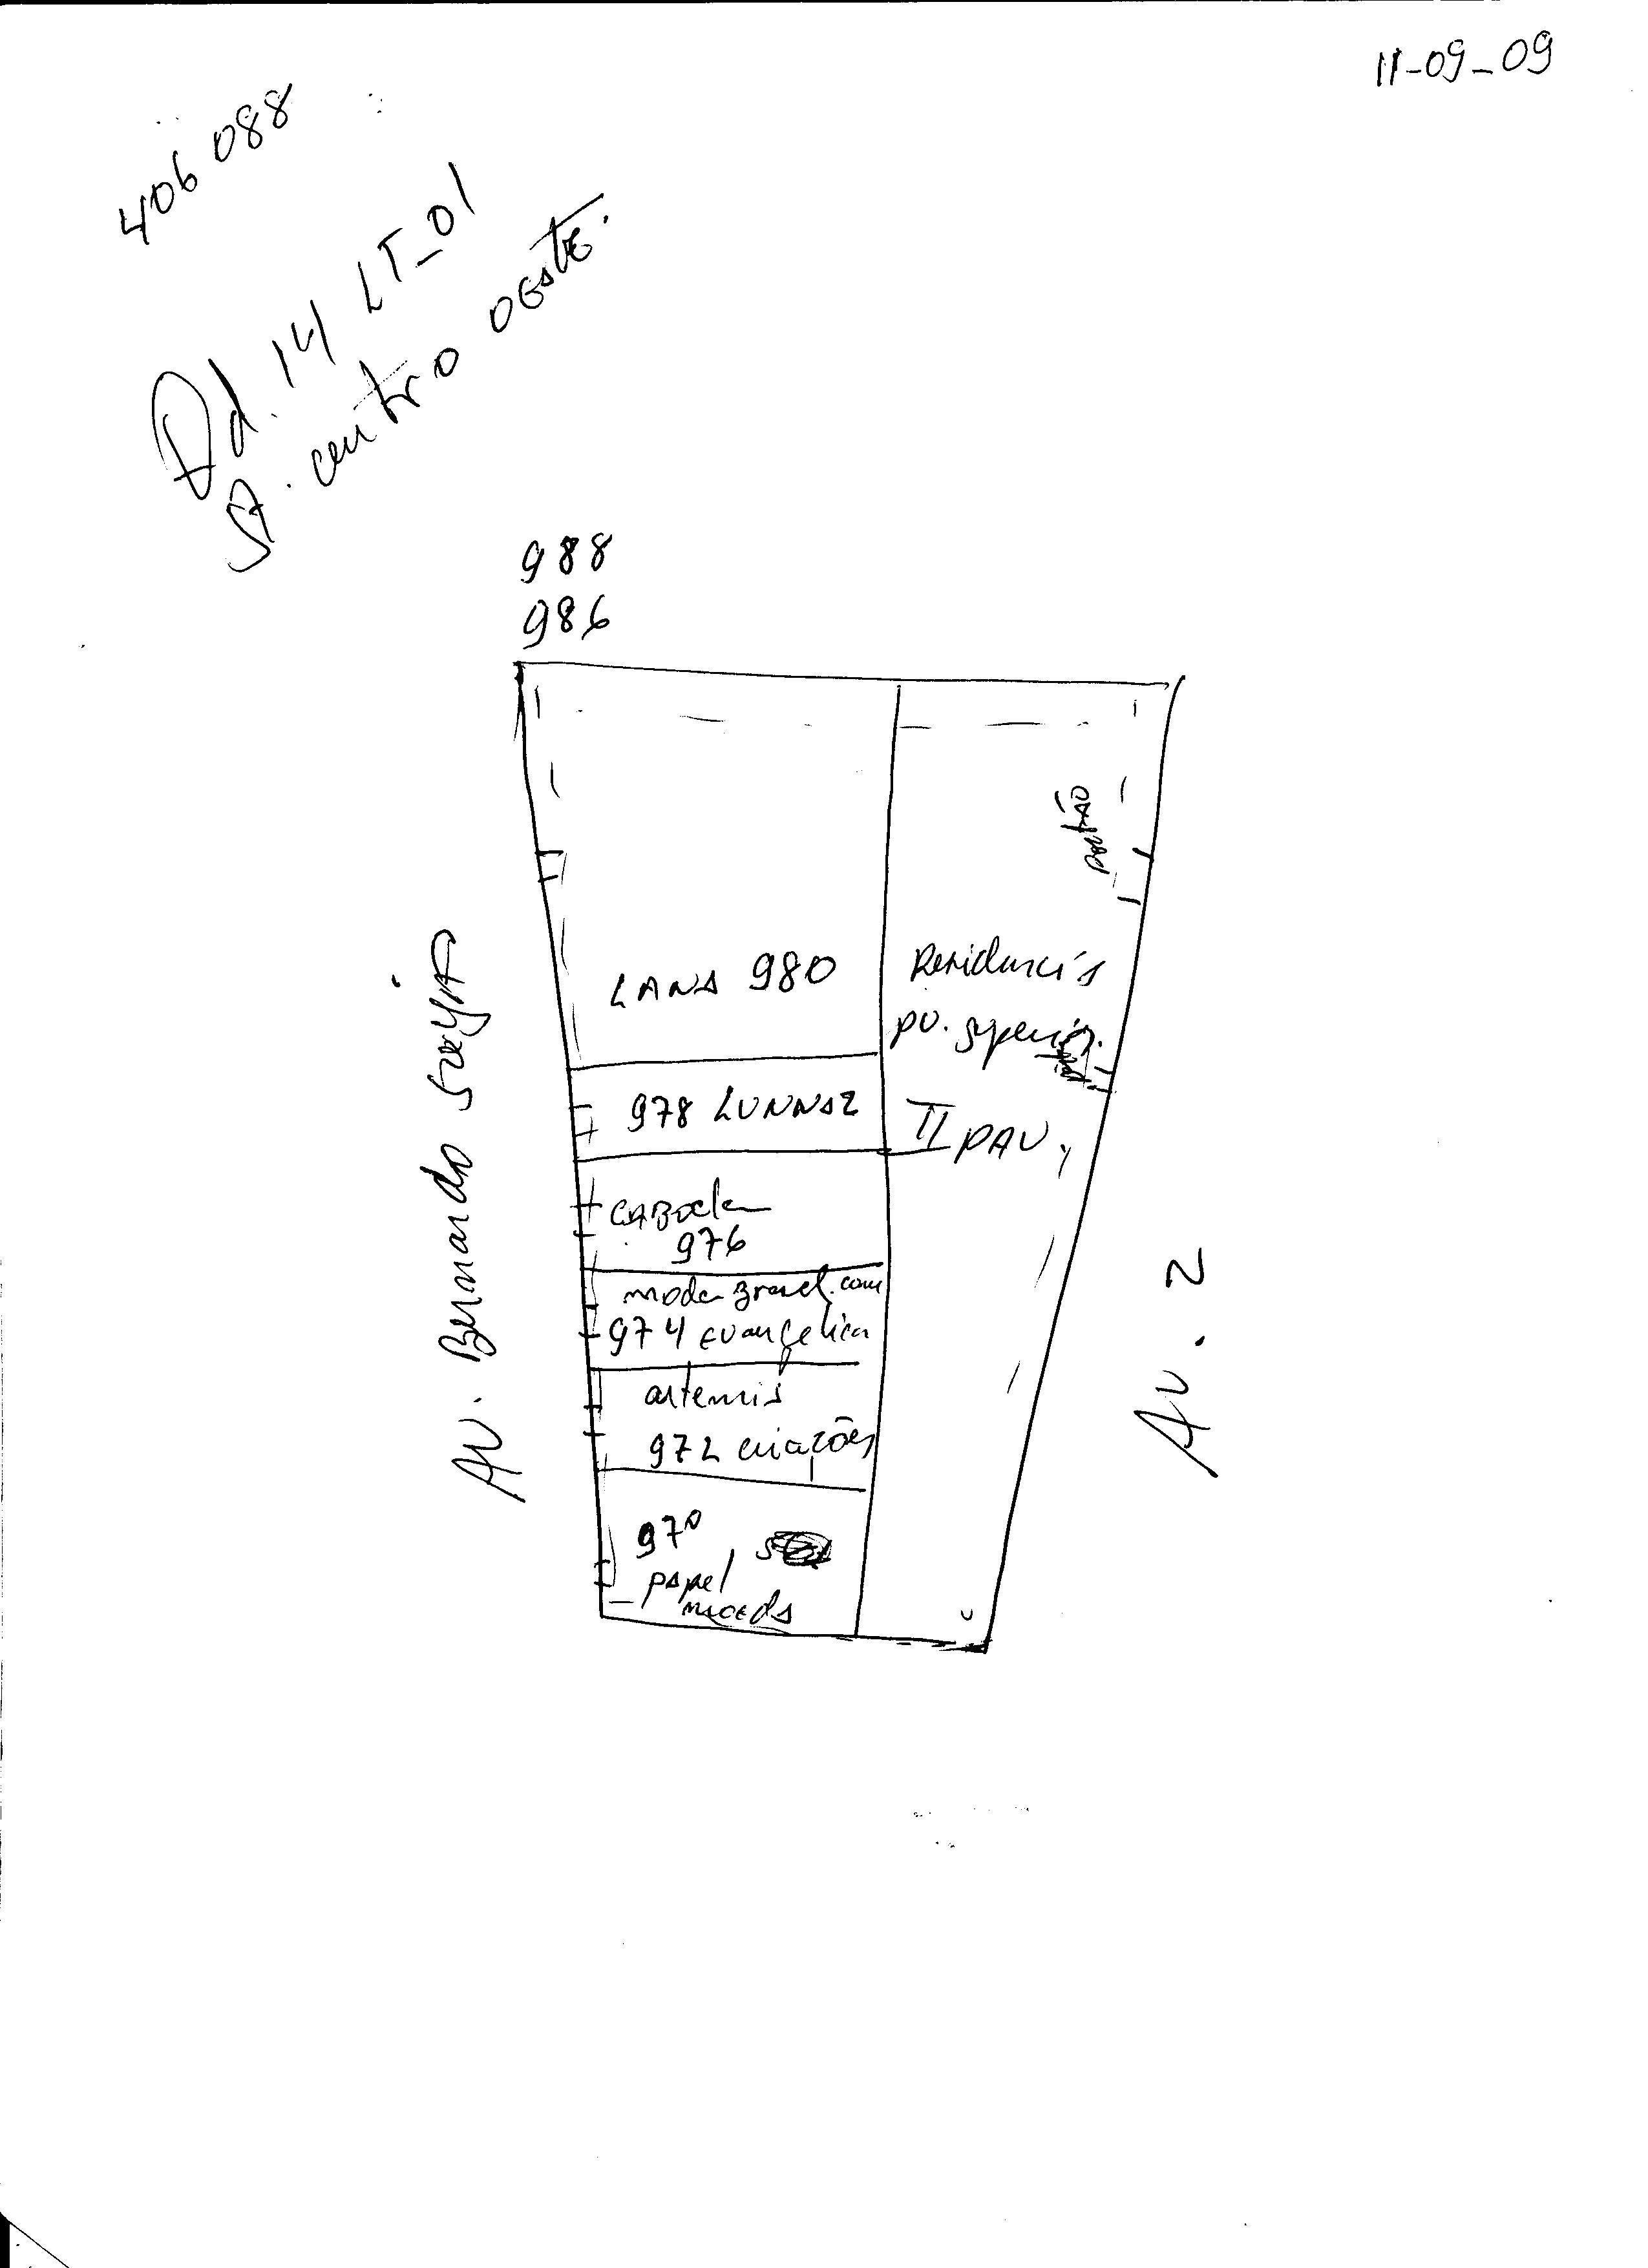 11-09-09
406 088
Qd. 14 LT-01
St. centro oeste.
988
986
portão
LANA 980
Residencia
pv. superior.
978 LUNNAZ
II PAV.
CABocla
976
moda Brasil.com
974 Evangelica
artemis
972 criações
970
papel
moeda
Av. Bernardo Sayão
Av. 2